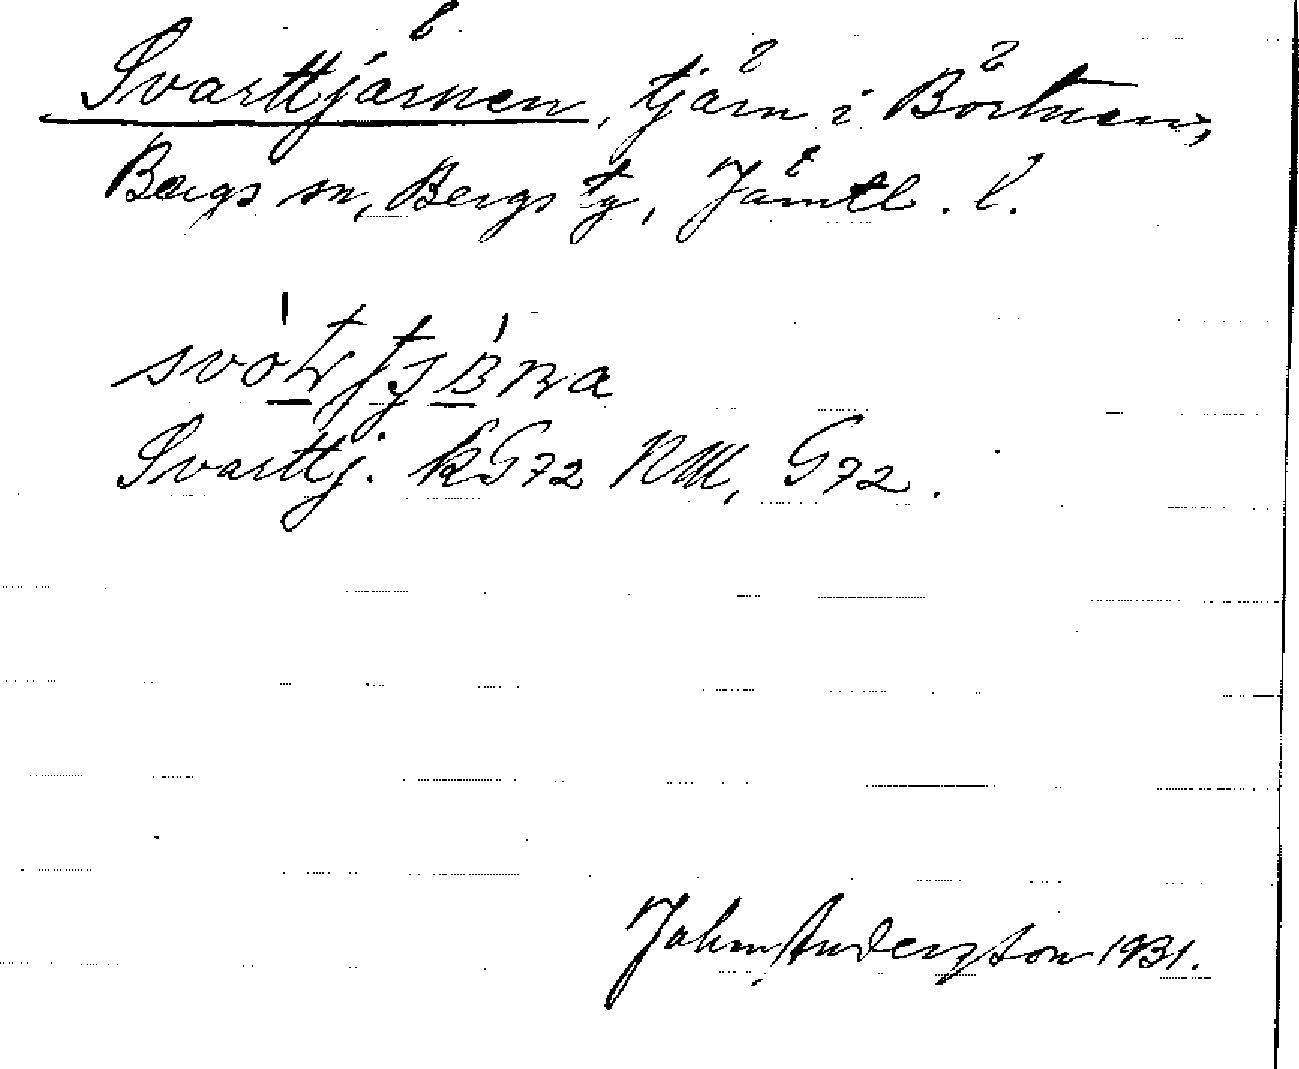 Svarttjärnen, tjärn i Börtnen,
Bergs sn, Bergs tg, Jämtl. l.
Svarttj. kG72 RM, G72.
John Andersson 1931.